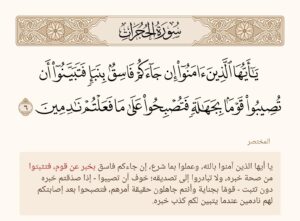 سُورَةُ الحُجُرَاتِ
يَـٰٓأَيُّهَا ٱلَّذِينَ ءَامَنُوٓا۟ إِن جَآءَكُمْ فَاسِقٌۢ بِنَبَإٍۢ فَتَبَيَّنُوٓا۟ أَن
تُصِيبُوا۟ قَوْمًۢا بِجَهَـٰلَةٍۢ فَتُصْبِحُوا۟ عَلَىٰ مَا فَعَلْتُمْ نَـٰدِمِينَ ٦
المختصر
يا أيها الذين آمنوا بالله، وعملوا بما شرع، إن جاءكم فاسق بخبر عن قوم، فتثبتوا
من صحة خبره، ولا تبادروا إلى تصديقه؛ خوف أن تصيبوا - إذا صدقتم خبره
دون تثبت - قومًا بجناية وأنتم جاهلون حقيقة أمرهم، فتصبحوا بعد إصابتكم
لهم نادمين عندما يتبين لكم كذب خبره.